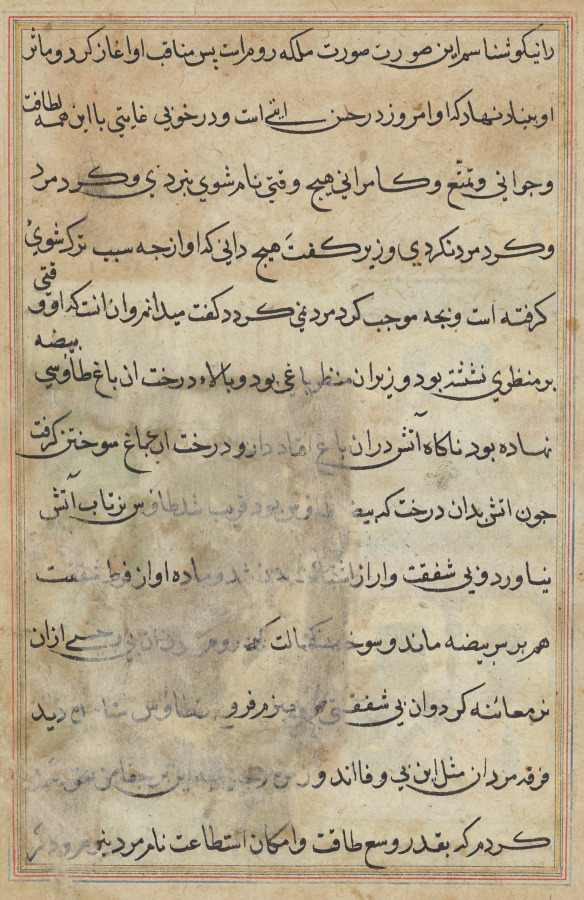 را نیکو شناسم این صورت صورت ملکه روم است پس مناقب او اغاز کرد و ماثر
او بنیاد نهاد که او امروز در حسن ایتی است و در خوبی غایتی با این همه لطافت
و جوانی و تمتّع و کامرانی هیچ وقتی نام شوی نبردی و کرد مرد
و کرد مرد نکردی وزیر گفت هیچ دانی که او از جه سبب ترک شوی
گرفته است و بجه موجب کرد مرد نمی کردد گفت میدانم روان انست که او وقتی
بر منظری نشسته بود و زیر ان منظر باغی بود و بالاء درخت ان باغ طاوسی بیضه
نهاده بود ناکاه آتش در ان باغ افتاد و درخت ان باغ سوختن گرفت
جون اتش بدان درخت که بیضه طاوس بود قریب شد طاوس نر تاب آتش
نیاورد و بی شفقت وار از شد و ماده او از فرط شفقت
هم بر سر بیضه ماند و سوخت ملکه روم از ان
نر معاینه کرد و ان بی شفقتی نر طاوس دید
فرقه مردان مثل این بی وفا اند و
کردم که بقدر وسع طاقت و امکان استطاعت نام مرد نبرم و